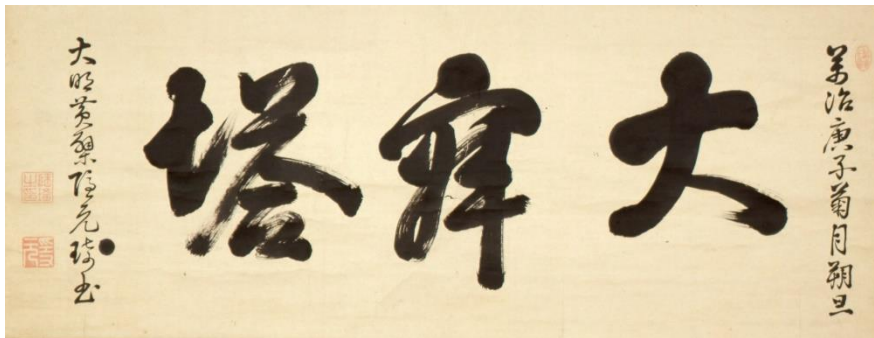 萬治庚子菊月朔旦
大塔
大明黄檗隱元琦書